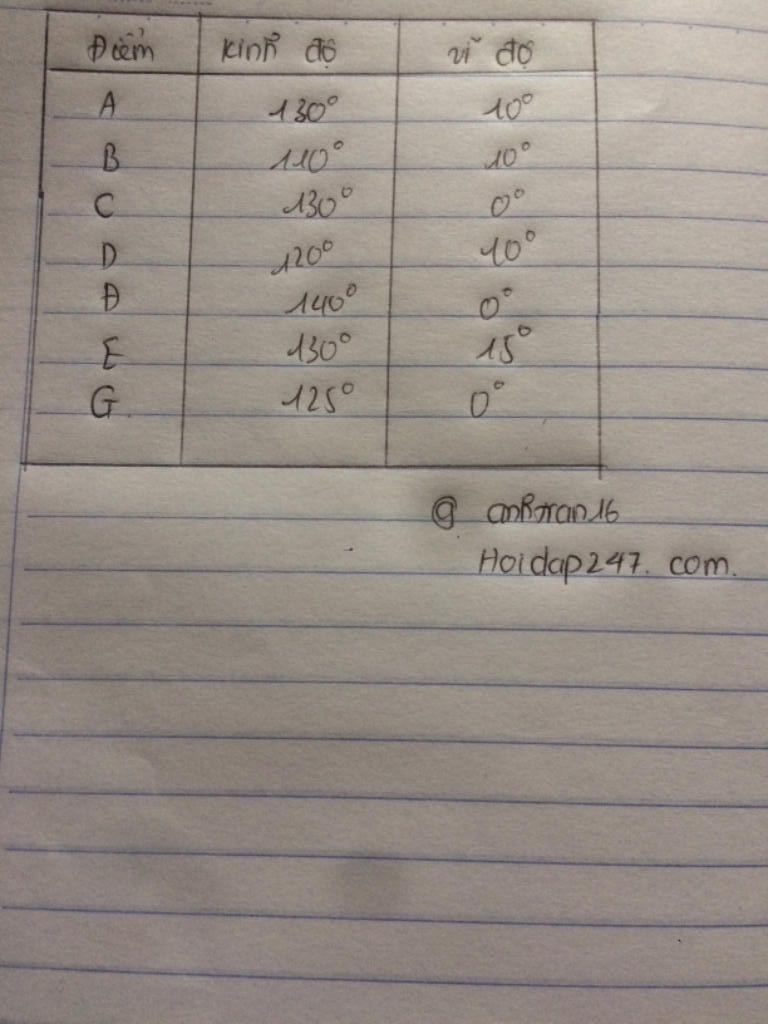 Điểm kinh độ vĩ độ
A 130° 10°
B 110° 10°
C 130° 0°
D 120° 10°
Đ 140° 0°
E 130° 15°
G 125° 0°
@ anhtran16
Hoidap247. com.